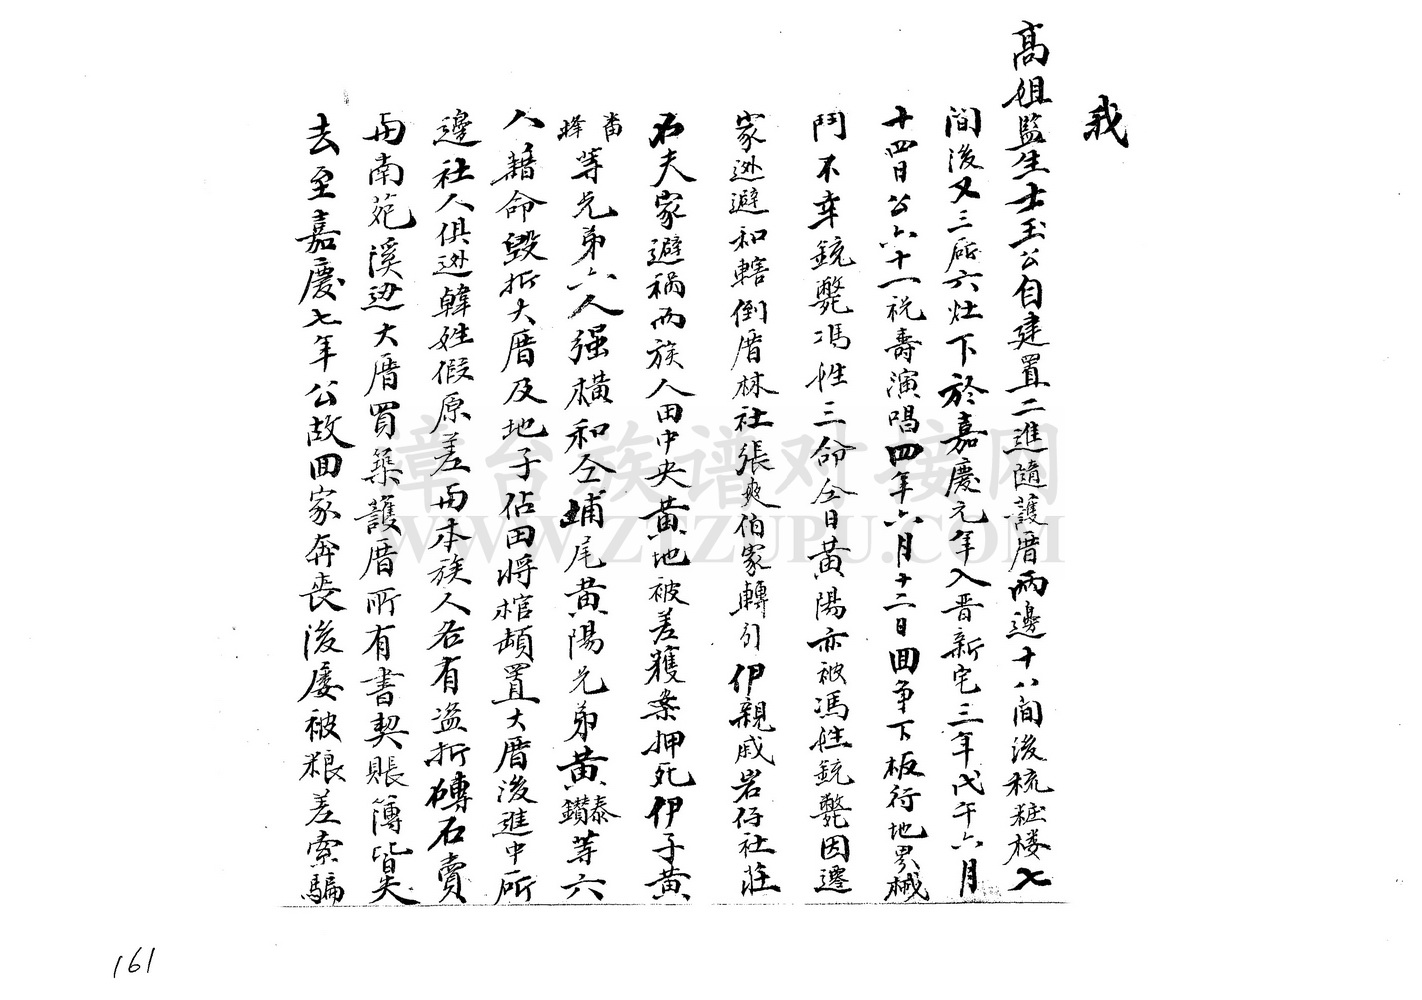 我
高祖監生士玉公自建置二進隨護厝兩邊十八間後梳粧樓七
間後又三所六灶下於嘉慶元年入晋新宅三年戊午六月
十四日公六十一祝壽演唱四年六月十二日因爭下板行地界械
鬥不幸銃斃馮姓三命仝日黃陽亦被馮姓銃斃因遷
家逊避和轄倒厝林社張爽伯家轉引伊親戚岩仔社莊
石夫家避禍而族人田中央黃地被差獲案押死伊子黃
畨蜂等兄弟六人强横和仝埔尾黃陽兄弟黃泰鑽等六
人藉命毀折大厝及地子佔田將棺頓置大厝後進中所
邊社人俱逊韓姓假原差與本族人名有盗折磚石賣
與南苑溪边大厝買築護厝所有書契賬簿皆失
去至嘉慶七年公故回家奔喪後屡被粮差索騙
漳台族谱对接网
WWW.ZTZUPU.COM
161